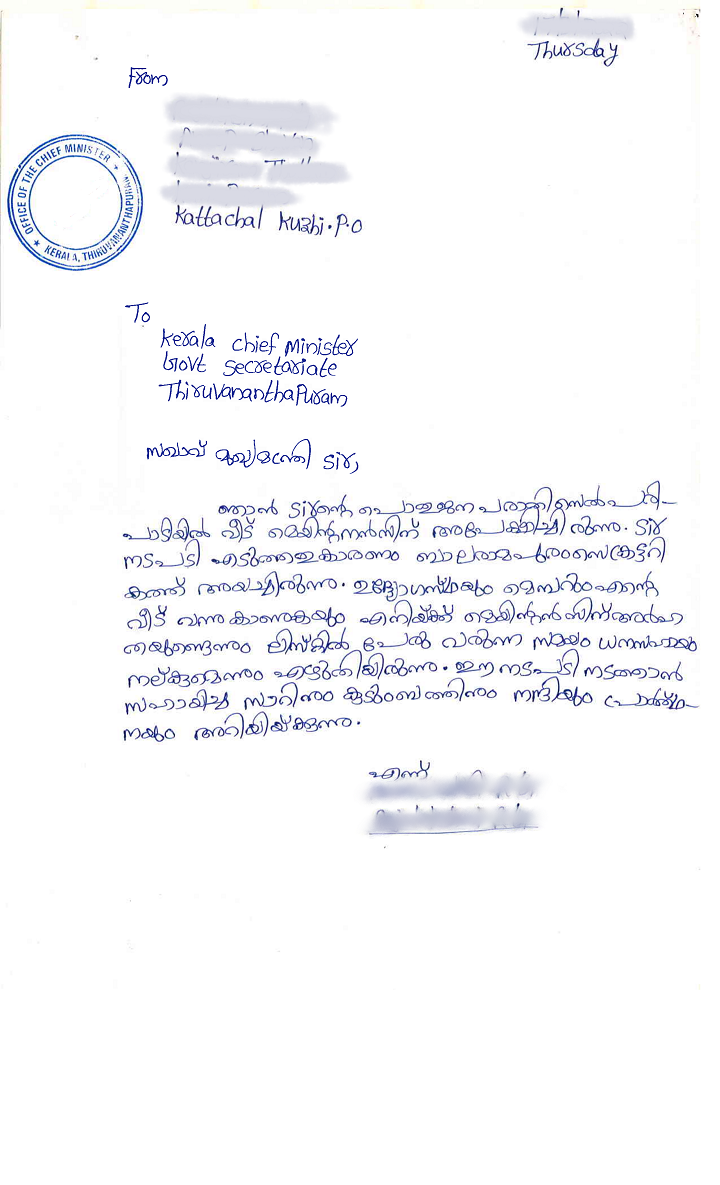 Thursday
From
OFFICE OF THE CHIEF MINISTER
KERALA, THIRUVANANTHAPURAM
Kattachal Kuzhi.P.O
To
Kerala Chief Minister
Govt Secretariate
Thiruvananthapuram
സഖാവ് മുഖ്യമന്ത്രി Sir,
ഞാൻ Sirന്റെ പൊതുജന പരാതിസെൽപരി-
പാടിയിൽ വീട് മെയിന്റനൻസിന് അപേക്ഷിച്ചിരുന്നു. Sir
നടപടി എടുത്തതുകാരണം ബാലരാമപുരംസെക്രട്ടറി
കത്ത് അയച്ചിരുന്നു. ഉദ്യോഗസ്ഥയും മെമ്പറുംഎന്റെ
വീട് വന്നുകാണുകയും എനിയ്ക്ക് മെയിന്റൻസിന്അർഹ
തയുണ്ടെന്നും ലിസ്റ്റിൽ പേരു വരുന്ന സമയം ധനസഹായം
നല്കുമെന്നും എഴുതിയിരുന്നു. ഈ നടപടി നടത്താൻ
സഹായിച്ച സാറിനും കുടുംബത്തിനും നന്ദിയും പ്രാർത്ഥ-
നയും അറിയിയ്ക്കുന്നു.
എന്ന്